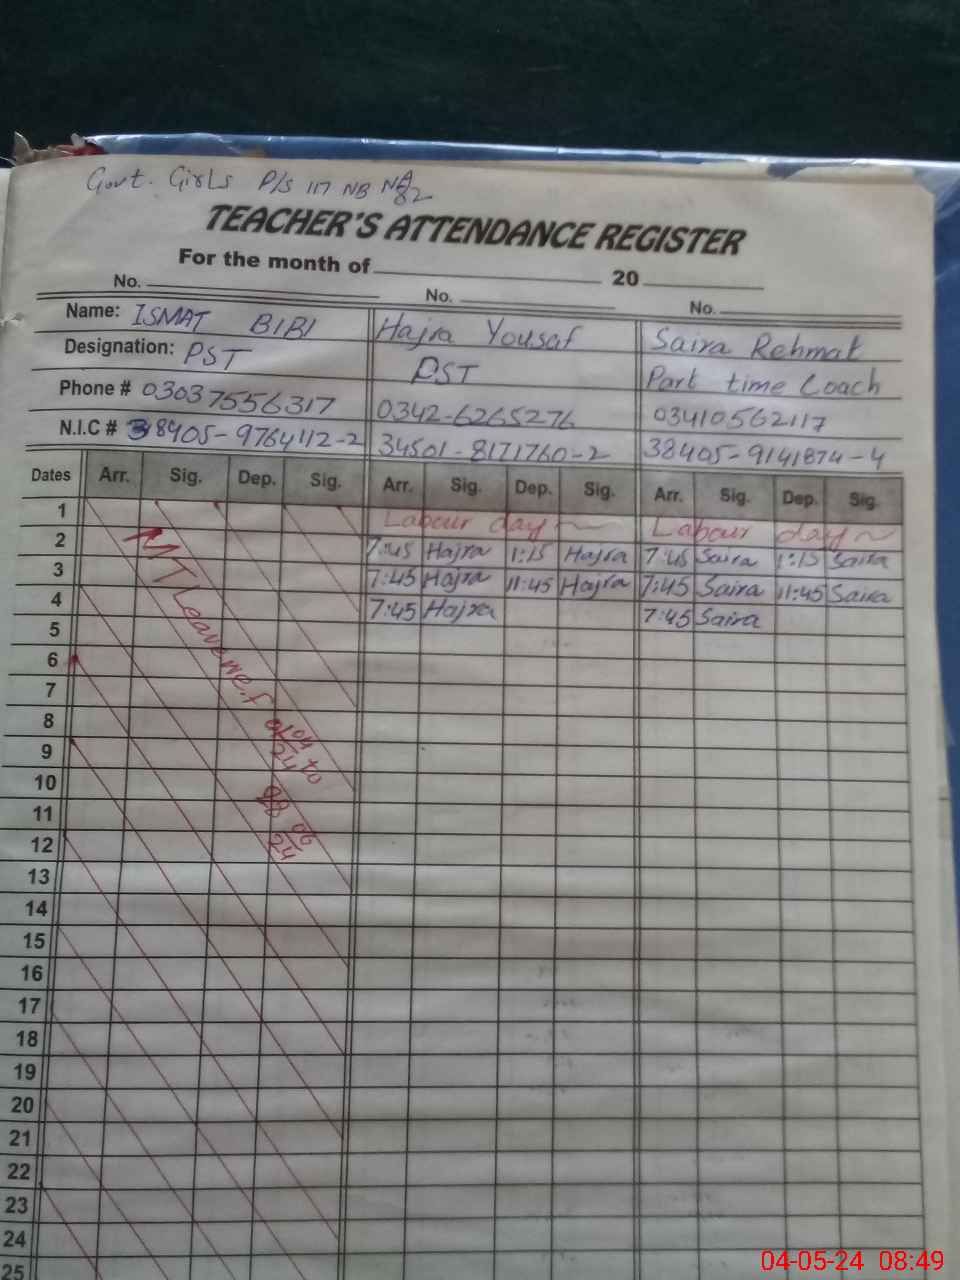 Govt. Girls P/S 117 NB NA 82
TEACHER'S ATTENDANCE REGISTER
For the month of 20
No. No. No.
Name: ISMAT BIBI Hajra Yousaf Saira Rehmat
Designation: PST PST Part time Coach
Phone # 03037556317 0342-6265276 03410562117
N.I.C # 38405-9764112-2 34501-8171760-2 38405-9141874-4
Dates Arr. Sig. Dep. Sig. Arr. Sig. Dep. Sig. Arr. Sig. Dep. Sig.
1 Labour day Labour day
2 7:45 Hajra 1:15 Hajra 7:45 Saira 1:15 Saira
3 7:45 Hajra 11:45 Hajra 7:45 Saira 11:45 Saira
4 7:45 Hajra 7:45 Saira
5
6
7
8
9
10
11
12
13
14
15
16
17
18
19
20
21
22
23
24
25
Leave w.e.f
04
24 to
08 06
24
04-05-24 08:49